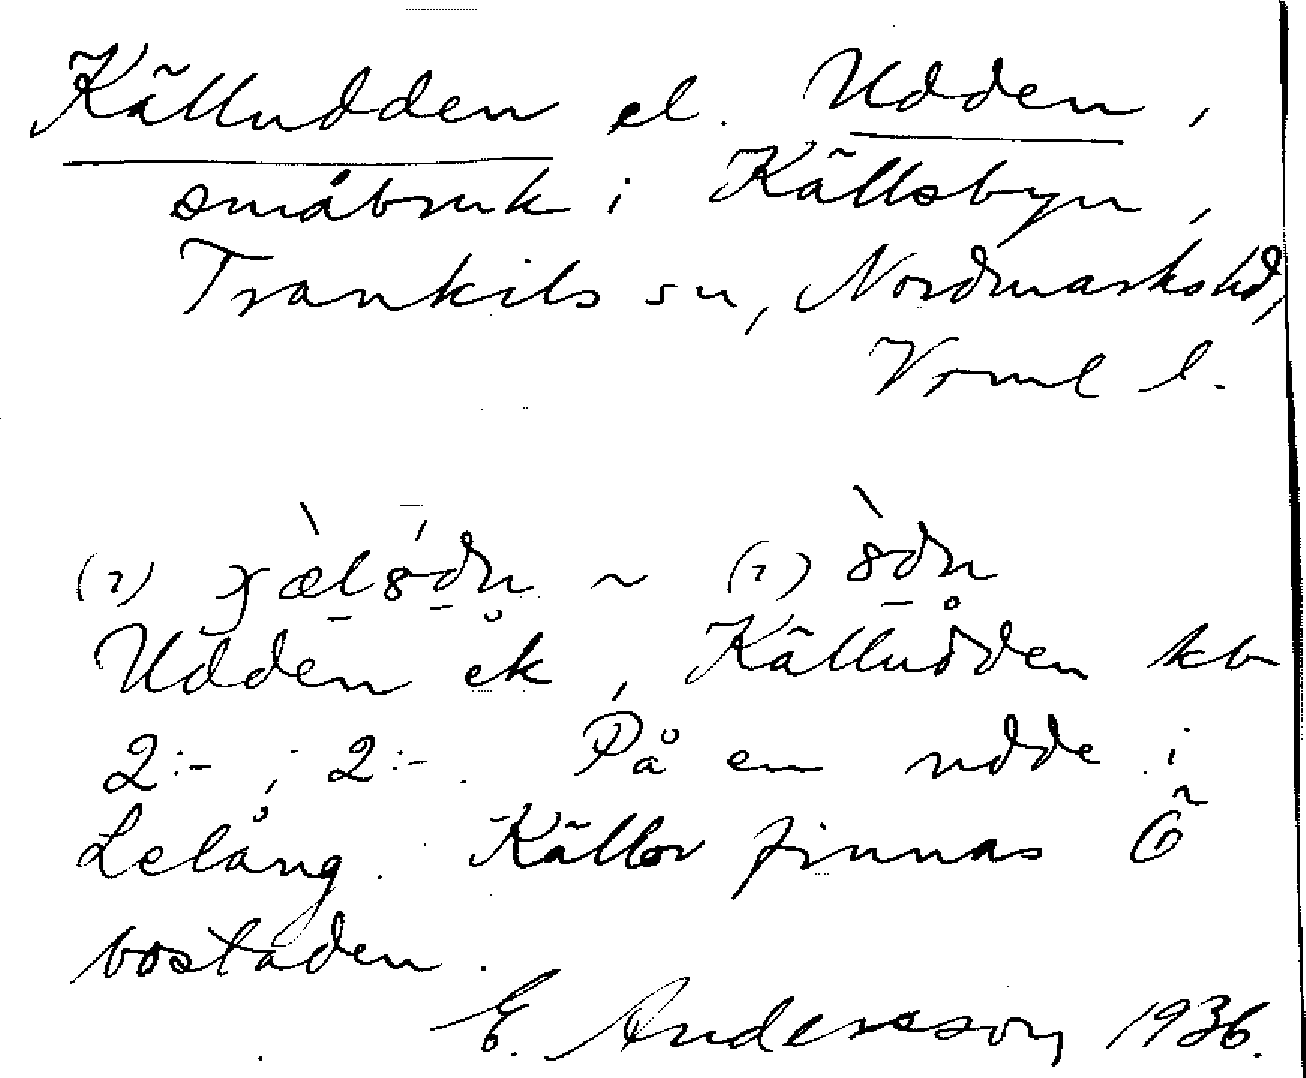 Källudden el. Udden,
småbruk i Källsbyn,
Trankils sn, Nordmarks hd,
Vrml l.
(2) ~ (2)
Udden ek, Källudden kb
2:- ; 2:-. På en udde i
Lelång. Källor finnas Ö
bostaden.
E. Andersson 1936.